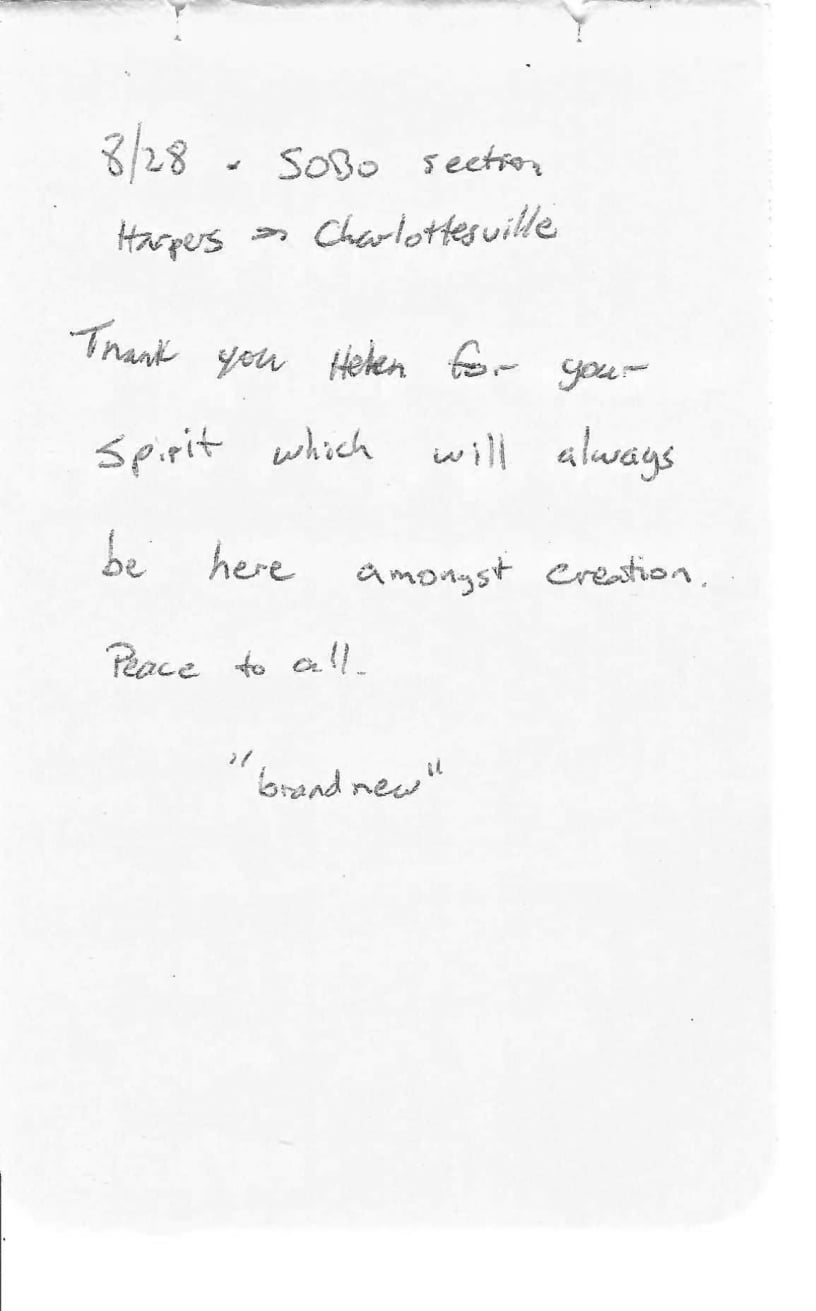 8/28 - SOBO section
Harpers => Charlottesville
Thank you Helen for your
spirit which will always
be here amongst creation.
Peace to all.
"brand new"